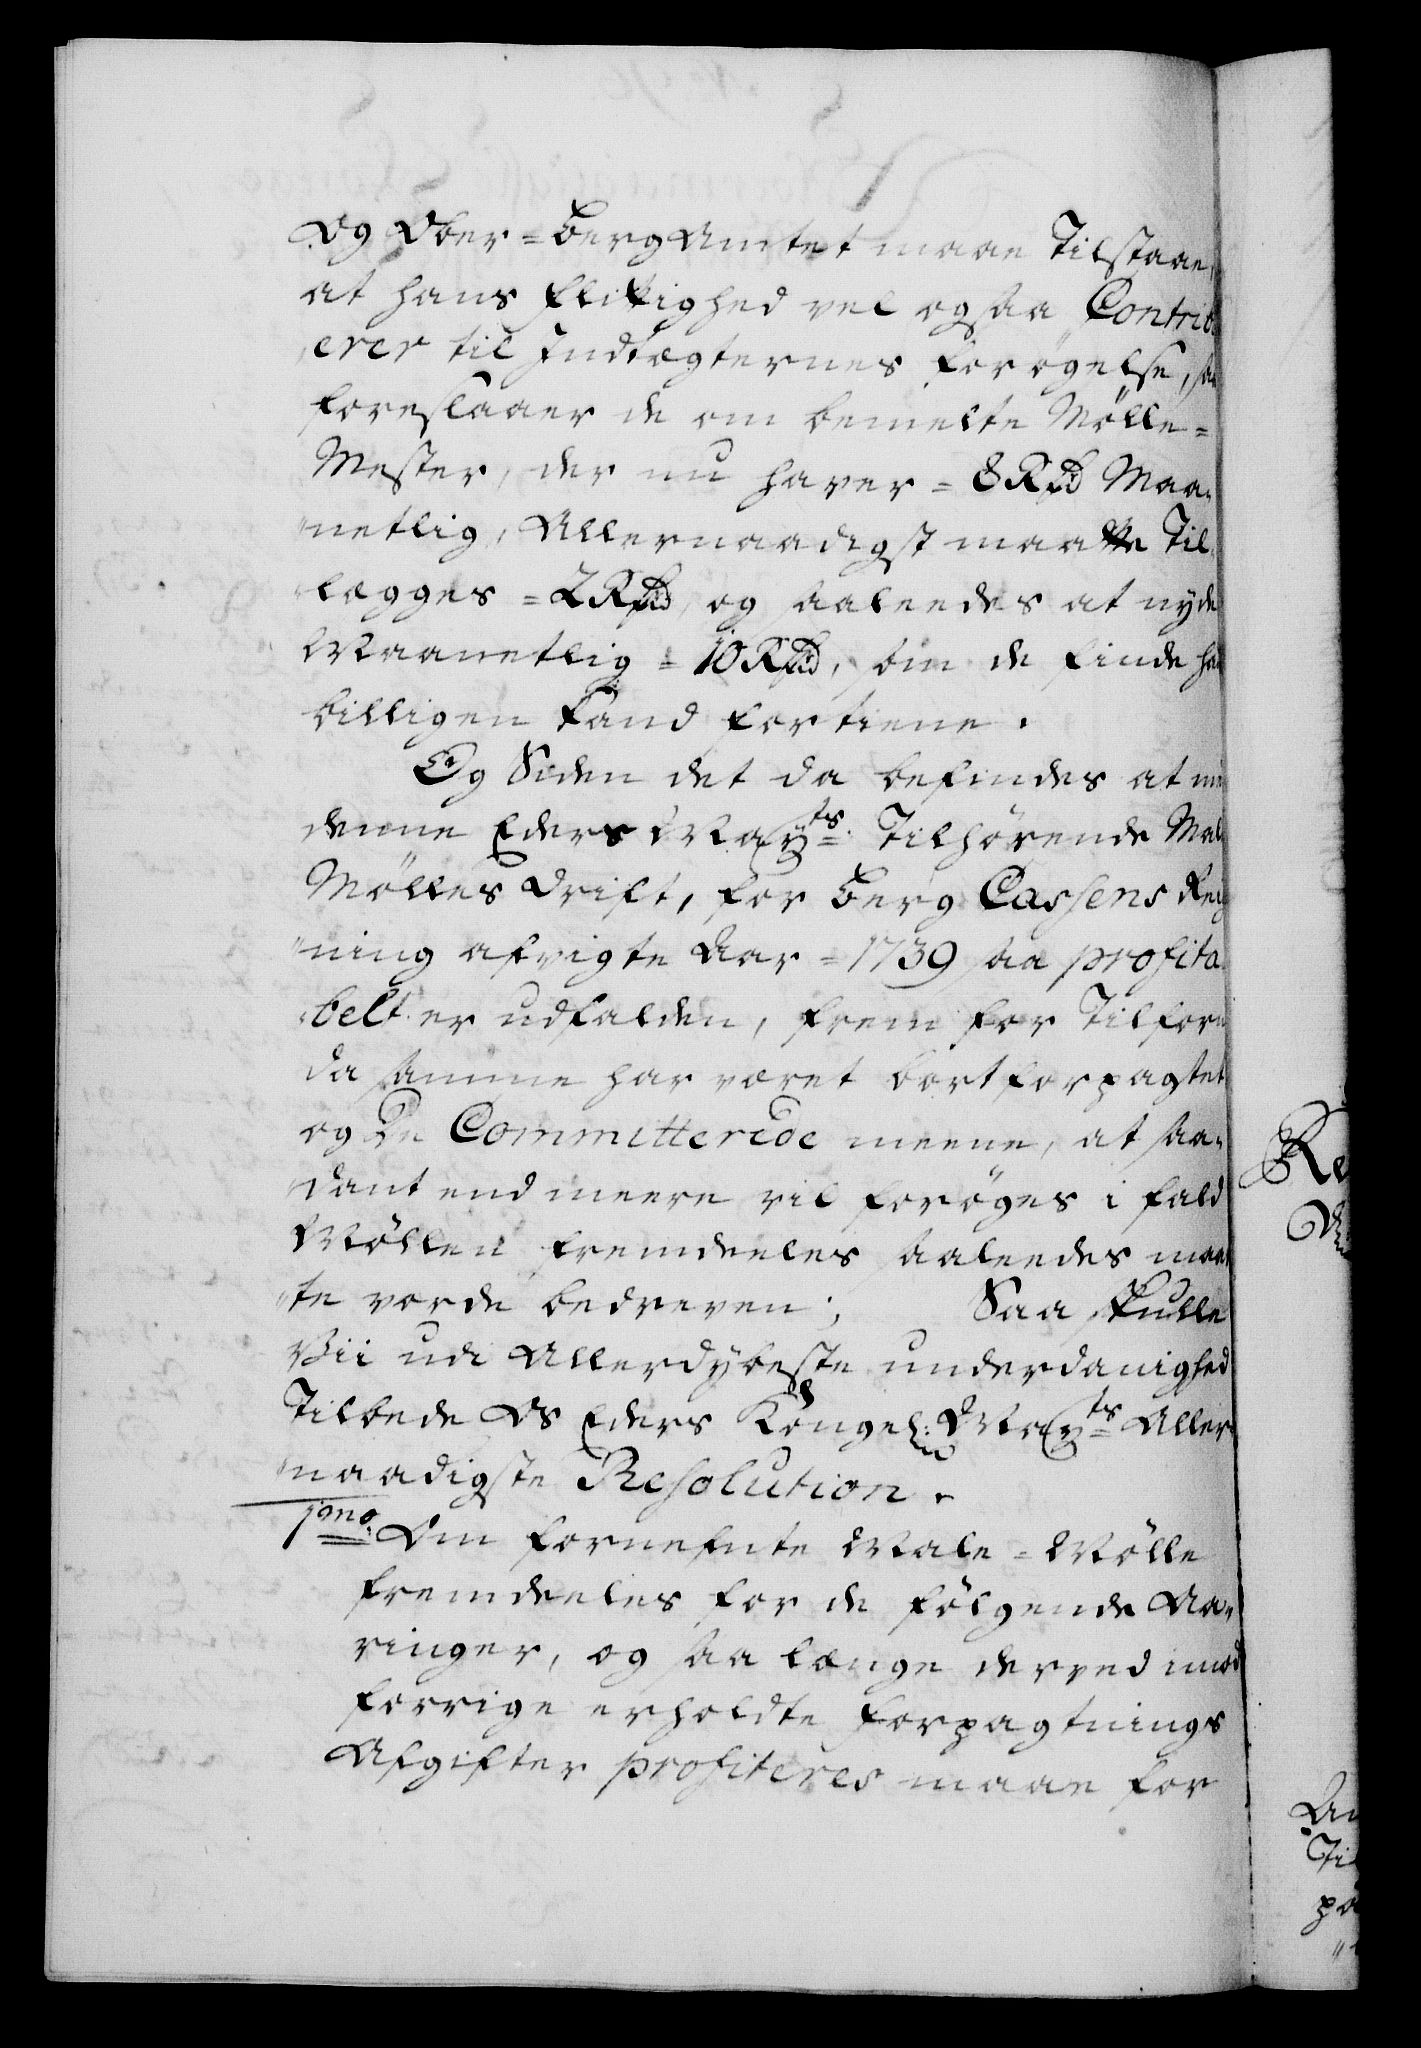 Og Ober=Berg Amtet maae Tilstaae,
at hans flittighed vel ogsaa Contrib
erer til Indtægternes forögelse, saa
foreslaaer de om bemelte Mölle=
Mester, der nu haver = 8 Rd Maa-
netlig, Allernaadigst maatte Til-
lægges = 2 Rd, og saaleedes at nyde
Maanetlig = 10 Rd, som de finde han
billigen kand fortiene.
Og Siden det da befindes at
denne Eders Mayts Tilhörende Male
Mölles Drift, for Berg Cassens Reig
ning afvigte Aar = 1739 saa profita-
belt er udfalden, frem for Tilforn
da samme har været bortforpagtet
og De Committerede meene, at saa-
dant end meere vil foröges i fald
Möllen fremdeeles saaleedes maat
te vorde bedreven; Saa skulle
Vii udi Allerdybeste underdanighed
Tilbede Os Eders Kongel: Mayts Aller
naadigste Resolution.
1mo. Om fornefnte Male=Mölle
fremdeeles for de fölgende Aa-
ringer, og saa længe derved imod
forrige erholdte forpagtnings
Afgifter profiteres maae for
Re
An
Til